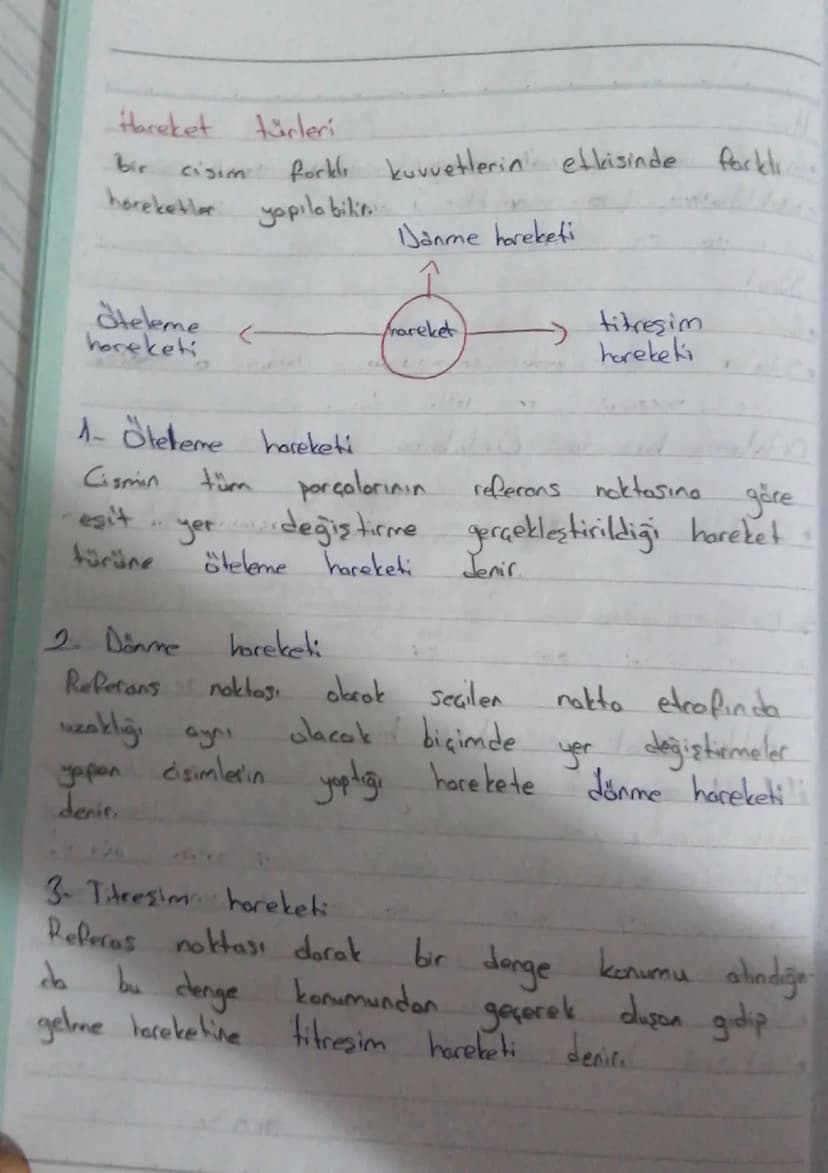 Hareket türleri
bir cisim farklı kuvvetlerin etkisinde farklı
hareketler yapılabilir.
Dönme hareketi
Öteleme
hareketi
hareket
titreşim
hareketi
1- Öteleme hareketi
Cismin tüm parçalarının referans noktasına göre
eşit yer değiştirme gerçekleştirildiği hareket
türüne öteleme hareketi denir.
2. Dönme hareketi
Referans noktası olarak seçilen nokta etrafında
uzaklığı aynı olacak biçimde yer değiştirmeler
yapan cisimlerin yaptığı harekete dönme hareketi
denir.
3- Titreşim hareketi
Referas noktası olarak bir denge konumu alındığın
da bu denge konumundan geçerek gidip
gelme hareketine titreşim hareketi denir.